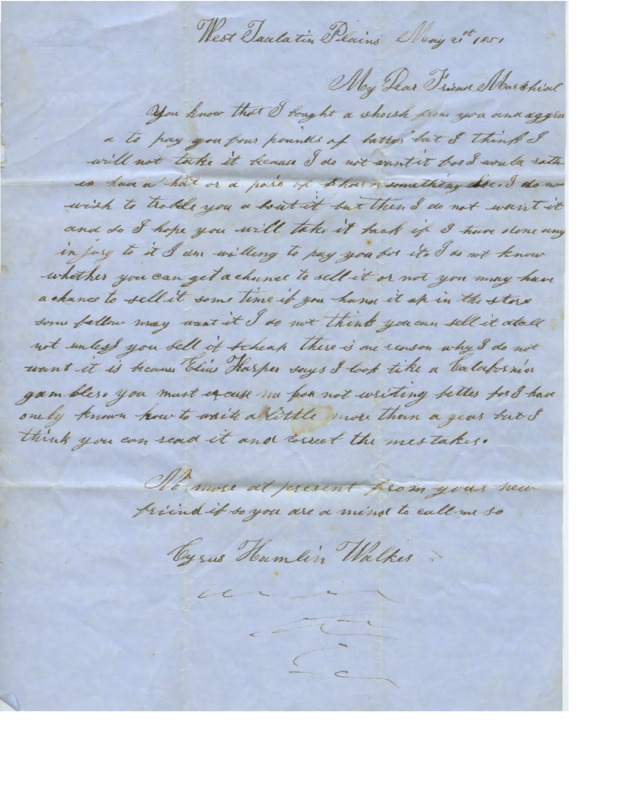 West Tualatin Plains May 21st 1851
My Dear Friend Marshial
You know that I bought a whish from you and aggre
a to pay you four pounds of butter but I think I
will not take it because I do not want it for I would rath
er have a hat or a pare of Shoes or something else. I do no
wish to treble you a bout it but then I do not want it
and so I hope you will take it back if I have done any
injury to it I am willing to pay you for it. I do not know
whether you can get a chance to sell it or not you may have
a chance to sell it some time if you hang it up in the store
some fellow may want it I do not think you can sell it atall
not unless you sell it scheap there is one reason why I do not
want it is because Elias Harper says I look like a Calafornia
gambler. you must excuse me for not writing better for I have
only known how to write a little more than a year but I
think you can read it and correct the mestakes.
No more at present from your new
friend if so you are a mind to call me so
Cyrus Hamlin Walker